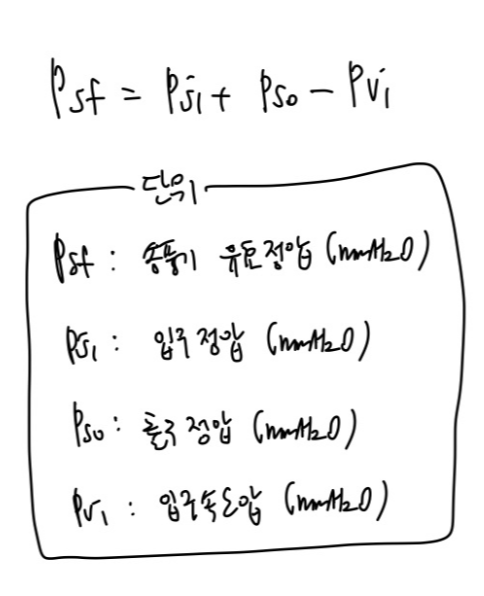 Psf = Psi + Pso - Pvi
단위
Psf : 송풍기 유효정압 (mmH2O)
Psi : 입구 정압 (mmH2O)
Pso : 출구 정압 (mmH2O)
Pvi : 입구속도압 (mmH2O)